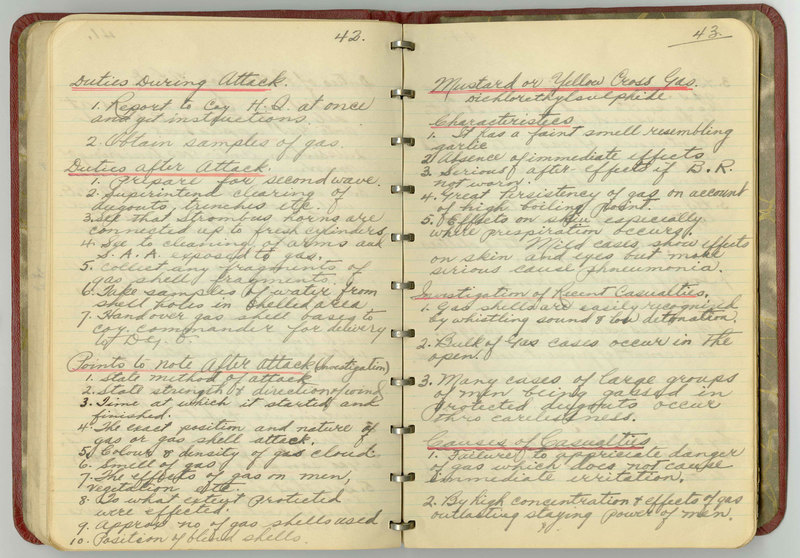 42.
Duties During Attack.
1. Report to Coy H.Q. at once
and get instructions.
2. Obtain samples of gas.
Duties after Attack.
1. Prepare for second wave.
2. Superintend clearing of
dugouts, trenches etc.
3. See that Strombus horns are
connected up to fresh cylinders
4. See to cleaning of arms and
S.A.A. exposed to gas.
5. Collect any fragments of
gas shell fragments.
6. Take samples of water from
shell holes in shelled area
7. Hand over gas shell bases to
coy. commander for delivery
to D.G.O.
Points to note After attack (Investigation)
1. State method of attack
2. State strength & direction of wind
3. Time at which it started and
finished.
4. The exact position and nature of
gas or gas shell attack.
5. Colour & density of gas cloud.
6. Smell of gas
7. The effects of gas on men,
vegetation etc.
8. To what extent protected
were effected.
9. Approx no. of gas shells used
10. Position of blind shells.
43.
Mustard or Yellow Cross Gas.
Dichlorethylsulphide
Characteristics
1. It has a faint smell resembling
garlic
2. Absence of immediate effects
3. Serious after effects if B.R.
not worn.
4. Great persistency of gas on account
of high boiling point.
5. Effects on skin especially
where prespiration occurs.
Mild cases show effects
on skin and eyes but more
serious cause pneumonia.
Investigation of Recent Casualties.
1. Gas shells are easily recognized
by whistling sound & low detonation.
2. Bulk of Gas cases occur in the
open.
3. Many cases of large groups
of men being gassed in
protected dugouts occur
thro carelessness.
Causes of Casualties
1. Failure to appriciate danger
of gas which does not cause
immediate irritation.
2. By high concentration & effects of gas
outlasting staying power of men.